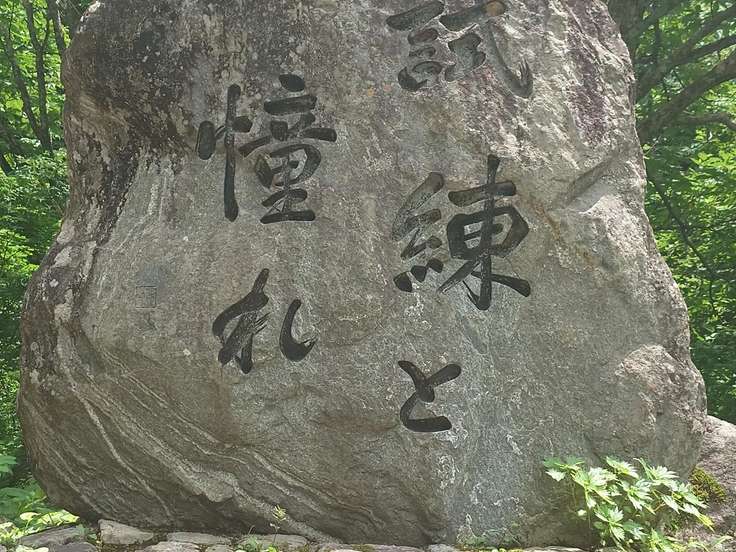 試練と
憧れ